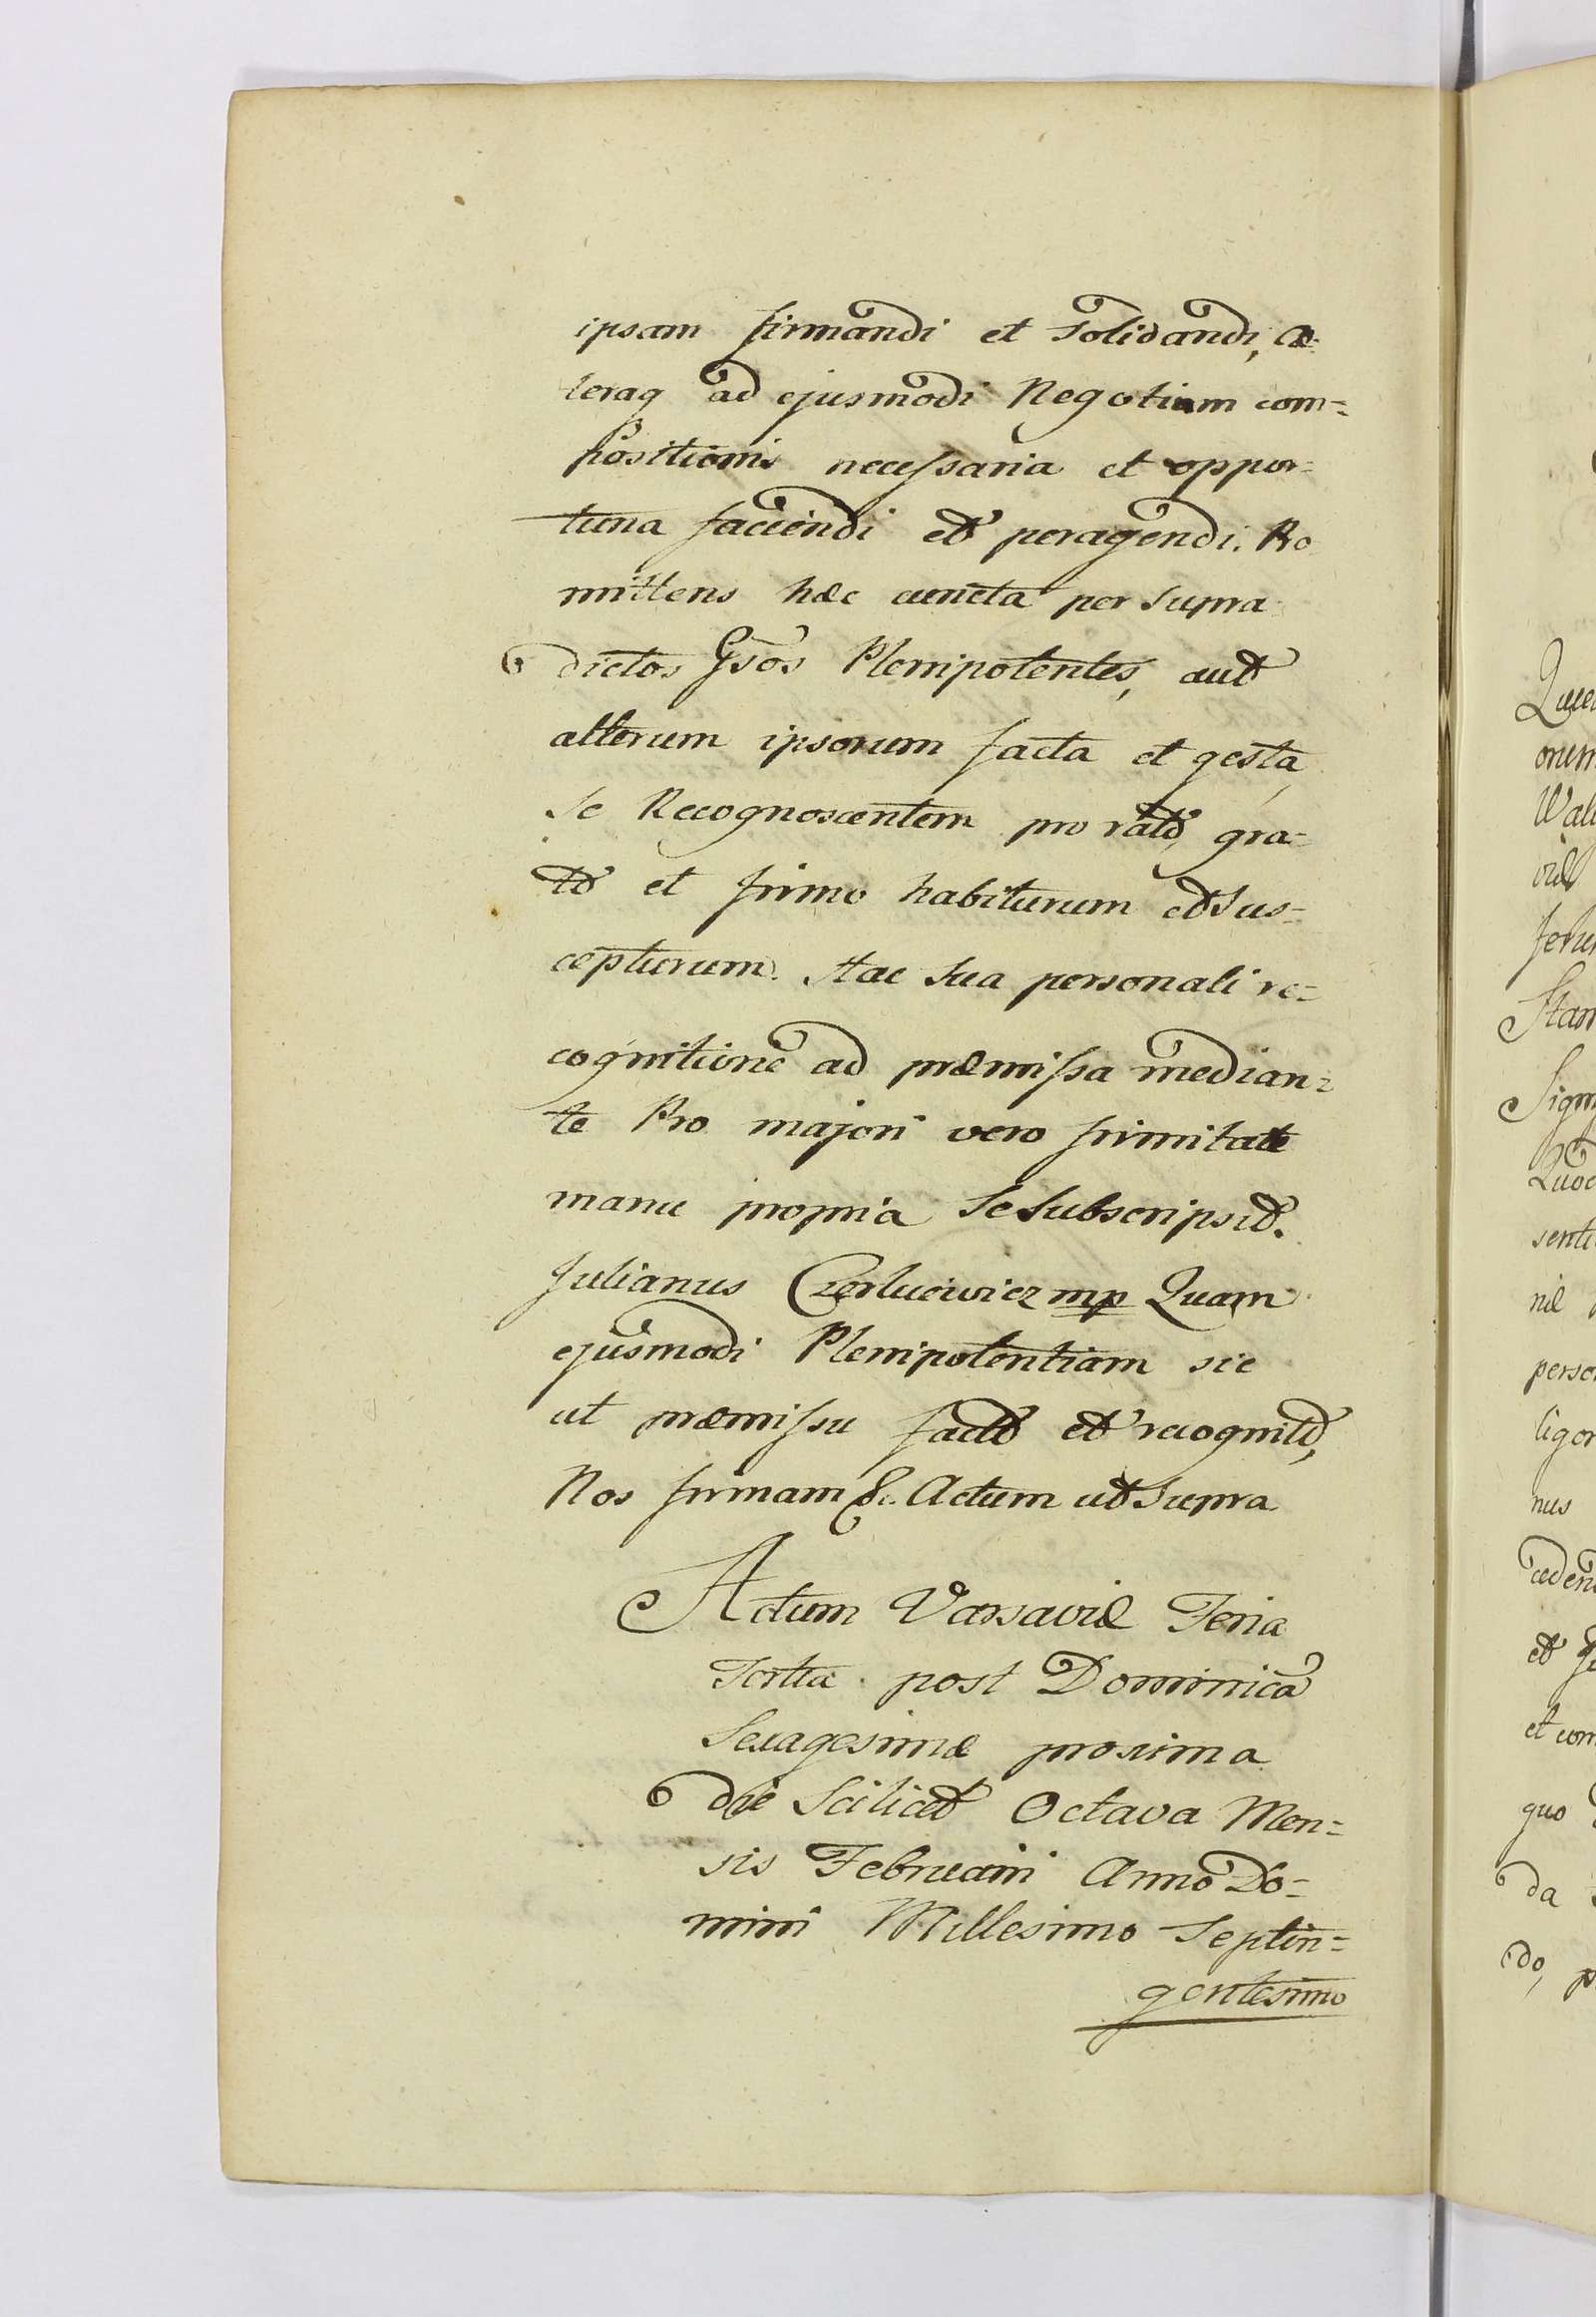 ipsam firmandi et Solidandi, cæ-
teraq ad ejusmodi Negotium com=
positioni necessaria et oppor=
tuna faciendi et peragendi. Pro
mittens hæc cuncta per Supra
dictos Gsos Plenipotentes, aut
alterum ipsorum facta et gesta,
Se Recognoscentem pro rato, gra=
to et firmo habiturum et Sus=
cepturum. Hac Sua personali re=
cognitione ad præmissa median=
te Pro majori vero firmitate
manu propria Se Subscripsit.
Julianus Czerlucwicz mp Quam
ejusmodi Plenipotentiam sic
ut præmissu facto et recognito,
Nos firmam &c. Actum ut Supra
Actum Varsaviæ Feria
Tertia post Dominica
Sexagesimæ proxima
die Scilicet Octava Men=
sis Februarii Anno Do=
mini Millesimo Septin=
gentesimo
Quæ
onem
Wal
viæ
Stan
Sign
Quod
senti
niæ
perso
ligor
nus
et com
quo
da
do, p